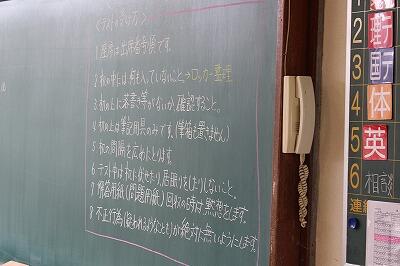 1 座席は出席番号順です。
2 机の中には何も入っていないこと。→ロッカー整理
3 机の上に落書き等がないか、確認すること。
4 机の上は筆記用具のみです。(筆箱も置きません)
5 机の間隔を広めにとります。
6 テスト中は机に伏せたり居眠りをしたりしないこと。
7 解答用紙(問題用紙)回収の時は黙想をします。
8 不正行為(疑われるようなことも)が絶対に無いようにします。
2 理テ
3 国テ
4 体
5 英
6 相談
連絡